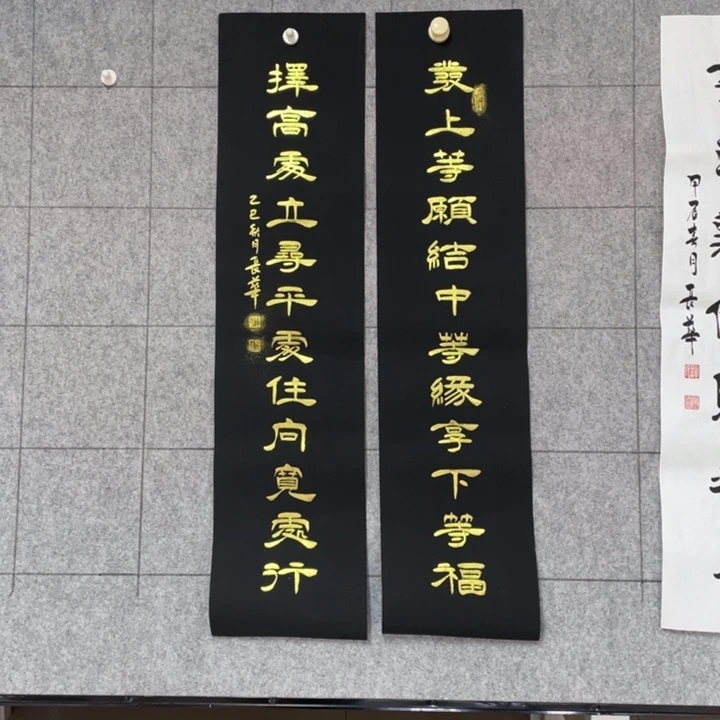 發上等願結中等緣享下等福
擇高處立尋平處住向寬處行
乙巳秋月長華
甲辰春月長華